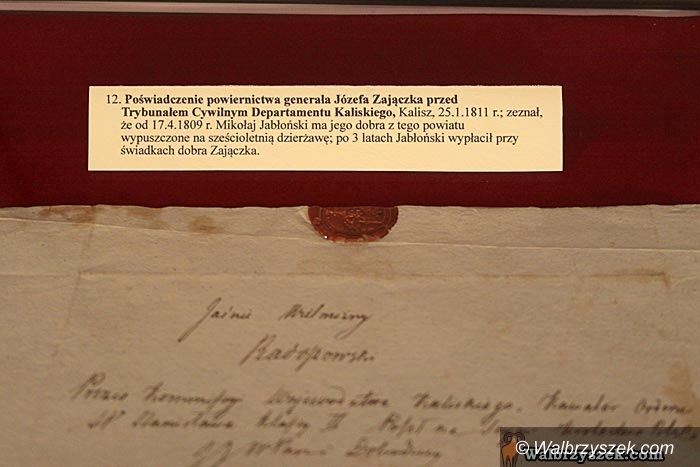 12. Poświadczenie powiernictwa generała Józefa Zajączka przed
Trybunałem Cywilnym Departamentu Kaliskiego, Kalisz, 25.1.1811 r.; zeznał,
że od 17.4.1809 r. Mikołaj Jabłoński ma jego dobra z tego powiatu
wypuszczone na sześcioletnią dzierżawę; po 3 latach Jabłoński wypłacił przy
świadkach dobra Zajączka.
Jaśnie Wielmożny
Radoszewski
Prezes Kommissyi Województwa Kaliskiego, Kawaler Orderu
Sº Stanisława klassy II Poseł na
© Walbrzyszek.com
Walbrzyszek.com